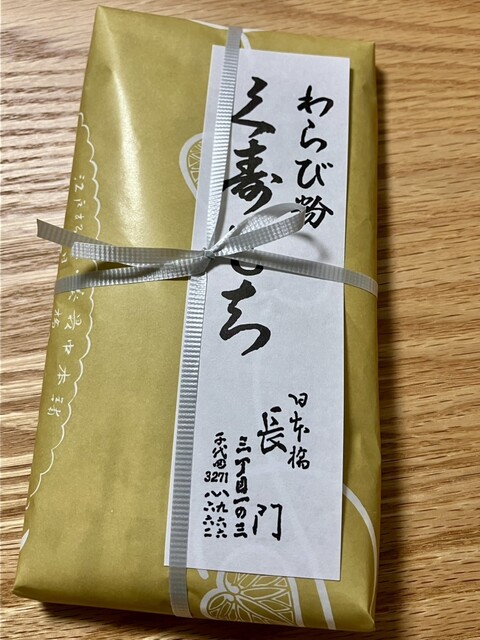 わらび粉
久寿もち
日本橋
長門
三丁目一の三
千代田3271
八九六六
八六六二